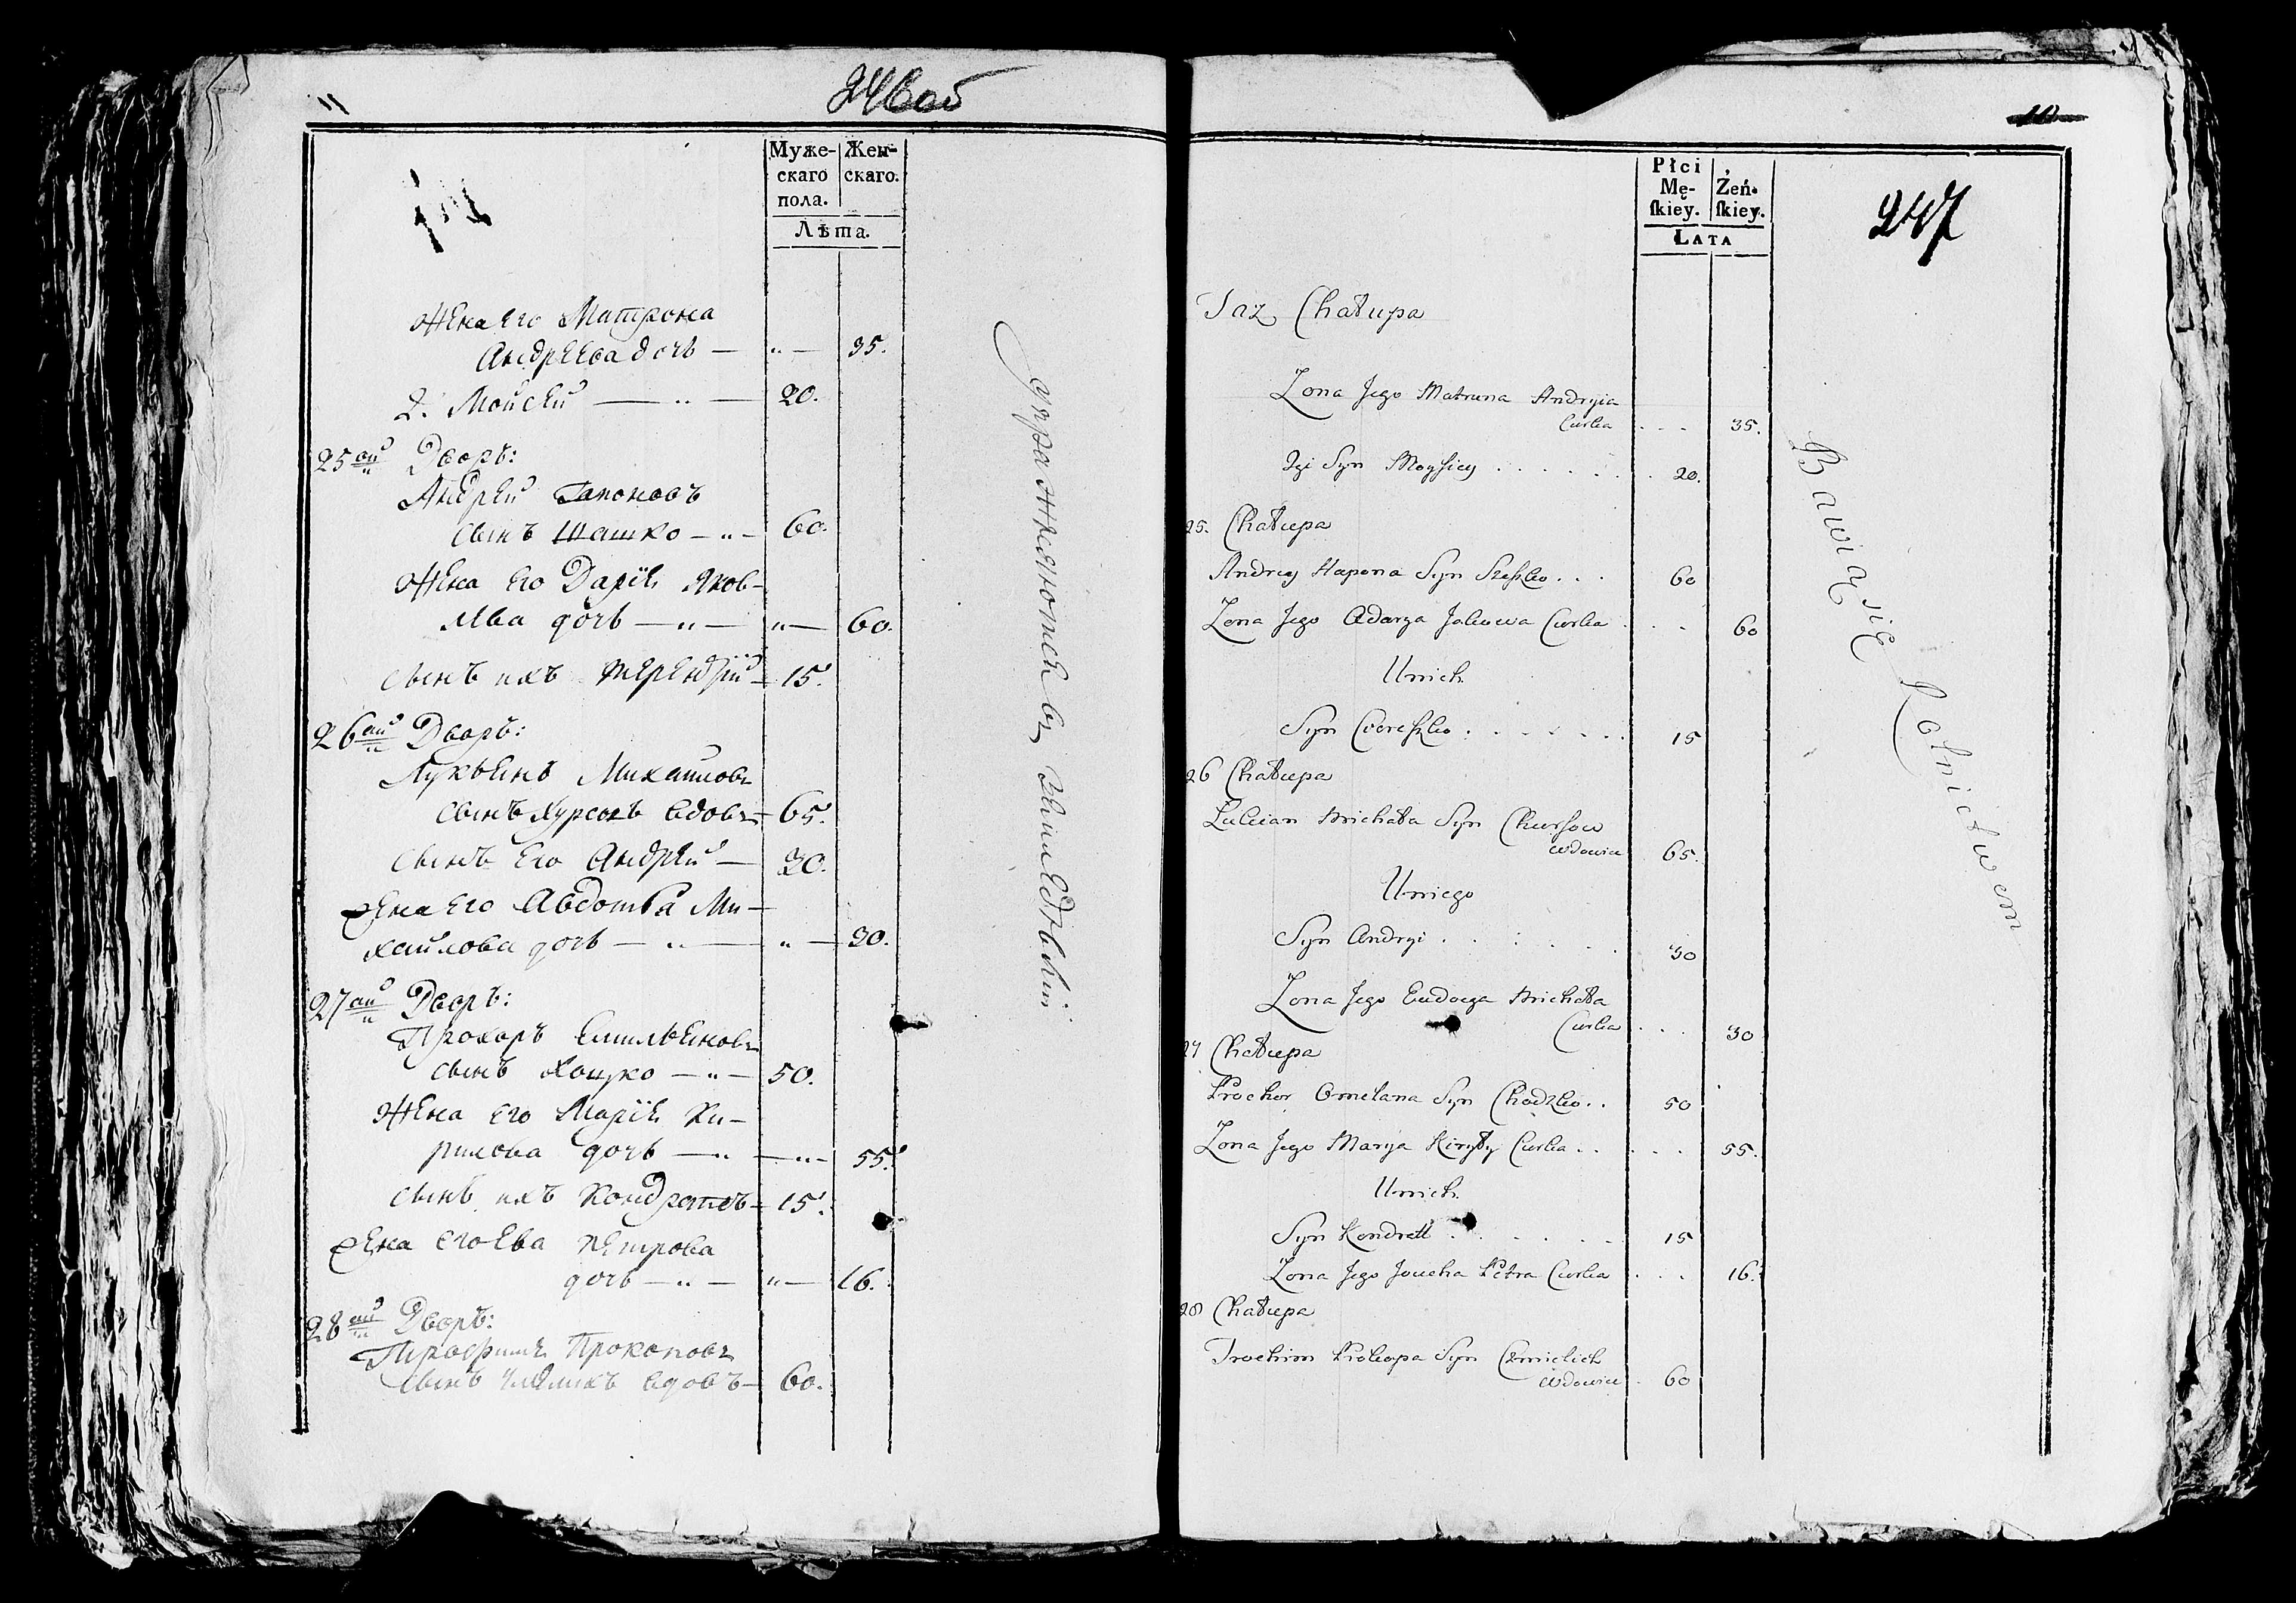 11
246 об
Муже-
скаго
пола.
Жен-
скаго.
Лѣта.
Жена его Матрона
Андреева дочь — „ — 35.
2. Мойсей — „ — 20.
25ой Дворъ:
Андрей Гапоновъ
сынъ Шашко — „ — 60.
Жена его Дарія Яков-
лева дочь — „ — „ — 60.
сынъ ихъ Терендій — 15.
26ой Дворъ:
Лукьянъ Михайловъ
сынъ Хурсовъ вдовъ — 65.
сынъ его Андрей — 30.
Жена его Авдотья Ми-
хайлова дочь — „ — „ — 30.
27ой Дворъ:
Прохоръ Емельяновъ
сынъ Хоцко — „ — 50.
Жена его Марія Ки-
рилова дочь — „ — „ — 55.
сынъ ихъ Кондратъ — 15.
Жена его Ева Петрова
дочь — „ — „ — 16.
28ой Дворъ:
Трофимъ Прокоповъ
сынъ вдовъ — 60.
упражняются въ земледѣліи
10
247
Płci
Mę-
skiey.
Żeń-
skiey.
LATA
Taz Chałupa
Zona Jego Matruna Andryia
Curka . . . 35.
2gi Syn Moysiey . . . . . . 20.
25. Chałupa
Andrey Hapona Syn Szeszko . . . 60
Zona Jego Adarya Jakowa Curka . . . 60
U nich
Syn Cereszko . . . . . . 15
26 Chałupa
Lukian Michała Syn Chursow
wdowiec 65.
U niego
Syn Andryi . . . . . 30
Zona Jego Eudocya Michała
Curka . . . 30
27 Chałupa
Prochor Omelana Syn Chodzko . . 50
Zona Jego Marya Kiryły Curka . . . . . 55.
U nich
Syn Kondratt . . . . . 15
Zona Jego Jewcha Petra Curka . . . 16.
28 Chałupa
Trochim Prokopa Syn
wdowiec . 60
Bawią się Rolnictwem